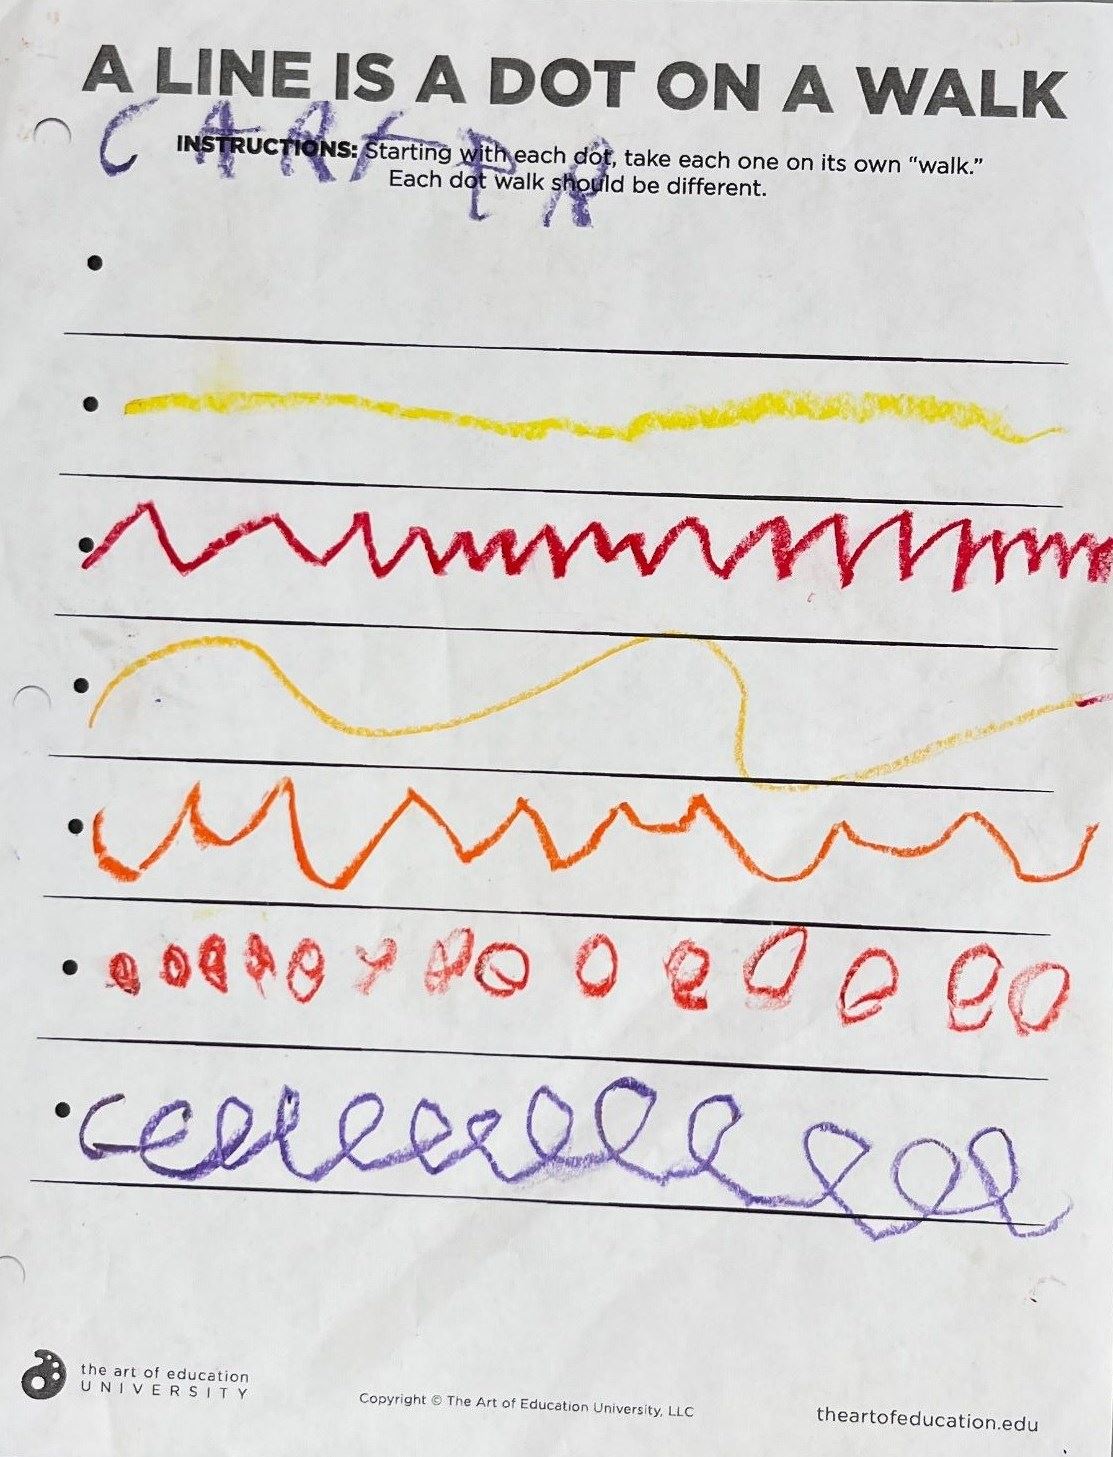 A LINE IS A DOT ON A WALK
CARTER
INSTRUCTIONS: Starting with each dot, take each one on its own “walk.”
Each dot walk should be different.
the art of education
UNIVERSITY
Copyright © The Art of Education University, LLC
theartofeducation.edu